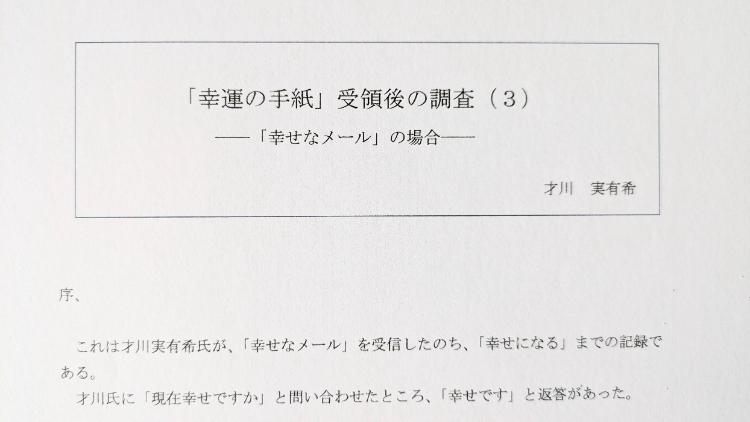 「幸運の手紙」受領後の調査（３）
――「幸せなメール」の場合――
才川　実有希
序、
これは才川実有希氏が、「幸せなメール」を受信したのち、「幸せになる」までの記録で
ある。
才川氏に「現在幸せですか」と問い合わせたところ、「幸せです」と返答があった。